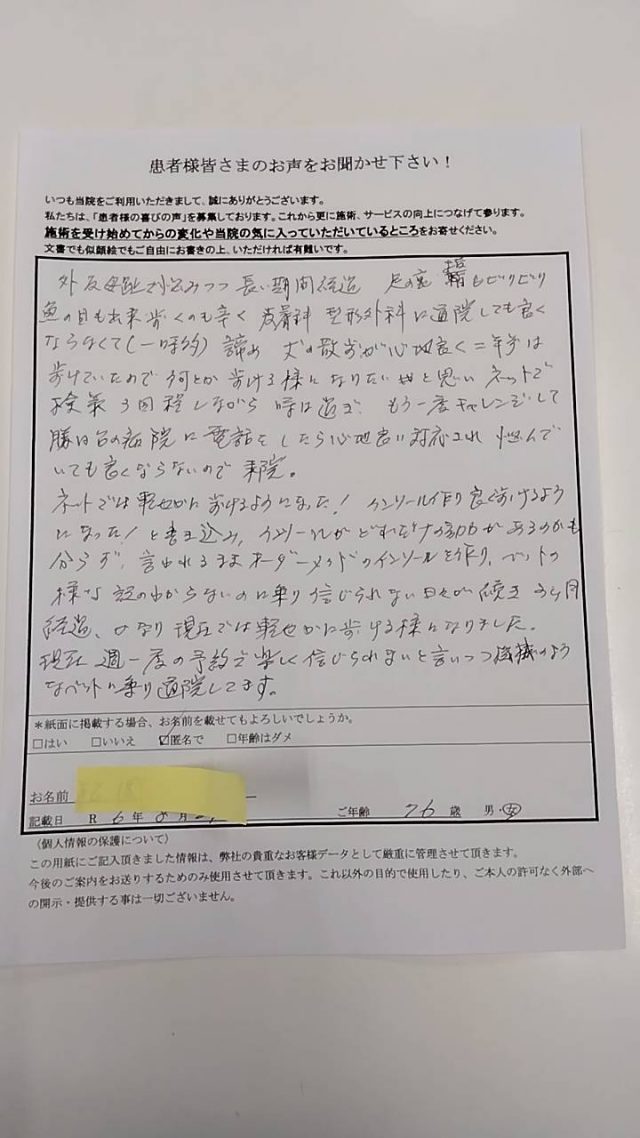 患者様皆さまのお声をお聞かせ下さい！
いつも当院をご利用いただきまして、誠にありがとうございます。
私たちは、「患者様の喜びの声」を募集しております。これから更に施術、サービスの向上につなげて参ります。
施術を受け始めてからの変化や当院の気に入っていただいているところをお寄せください。
文書でも似顔絵でもご自由にお書きの上、いただければ有難いです。
外反母趾で悩みつつ 長い期間経過 足の裏 指もビリビリ
魚の目も出来歩くのも辛く 皮膚科 整形外科に通院しても良く
ならなくて(一時的) 諦め 犬の散歩が心地良く二年半は
歩けていたので何とか歩ける様になりたいと思い ネットで
検索 3回程しながら 時は過ぎ もう一度チャレンジして
の病院に電話をしたら心地良い対応され 悩んで
いても良くならないので 来院。
ネットでは軽やかに歩けるようになった！インソール作り良く歩けるよう
になった！と書き込み、インソールがどれだけの があるのかも
分らず、言われるままオーダーメイドのインソールを作り、ベットの
様な 訳のわからないのに乗り信じられない日々が続き 3ヶ月
経過、かなり現在では軽やかに歩ける様になりました。
現在 週一度の予約で楽しく信じられないと言いつつ機械のよう
なベットに乗り通院してます。
＊紙面に掲載する場合、お名前を載せてもよろしいでしょうか。
□はい □いいえ ☑匿名で □年齢はダメ
お名前
記載日 R 6年 8月 ご年齢 76 歳 男・女
（個人情報の保護について）
この用紙にご記入頂きました情報は、弊社の貴重なお客様データとして厳重に管理させて頂きます。
今後のご案内をお送りするためのみ使用させて頂きます。これ以外の目的で使用したり、ご本人の許可なく外部へ
の開示・提供する事は一切ございません。